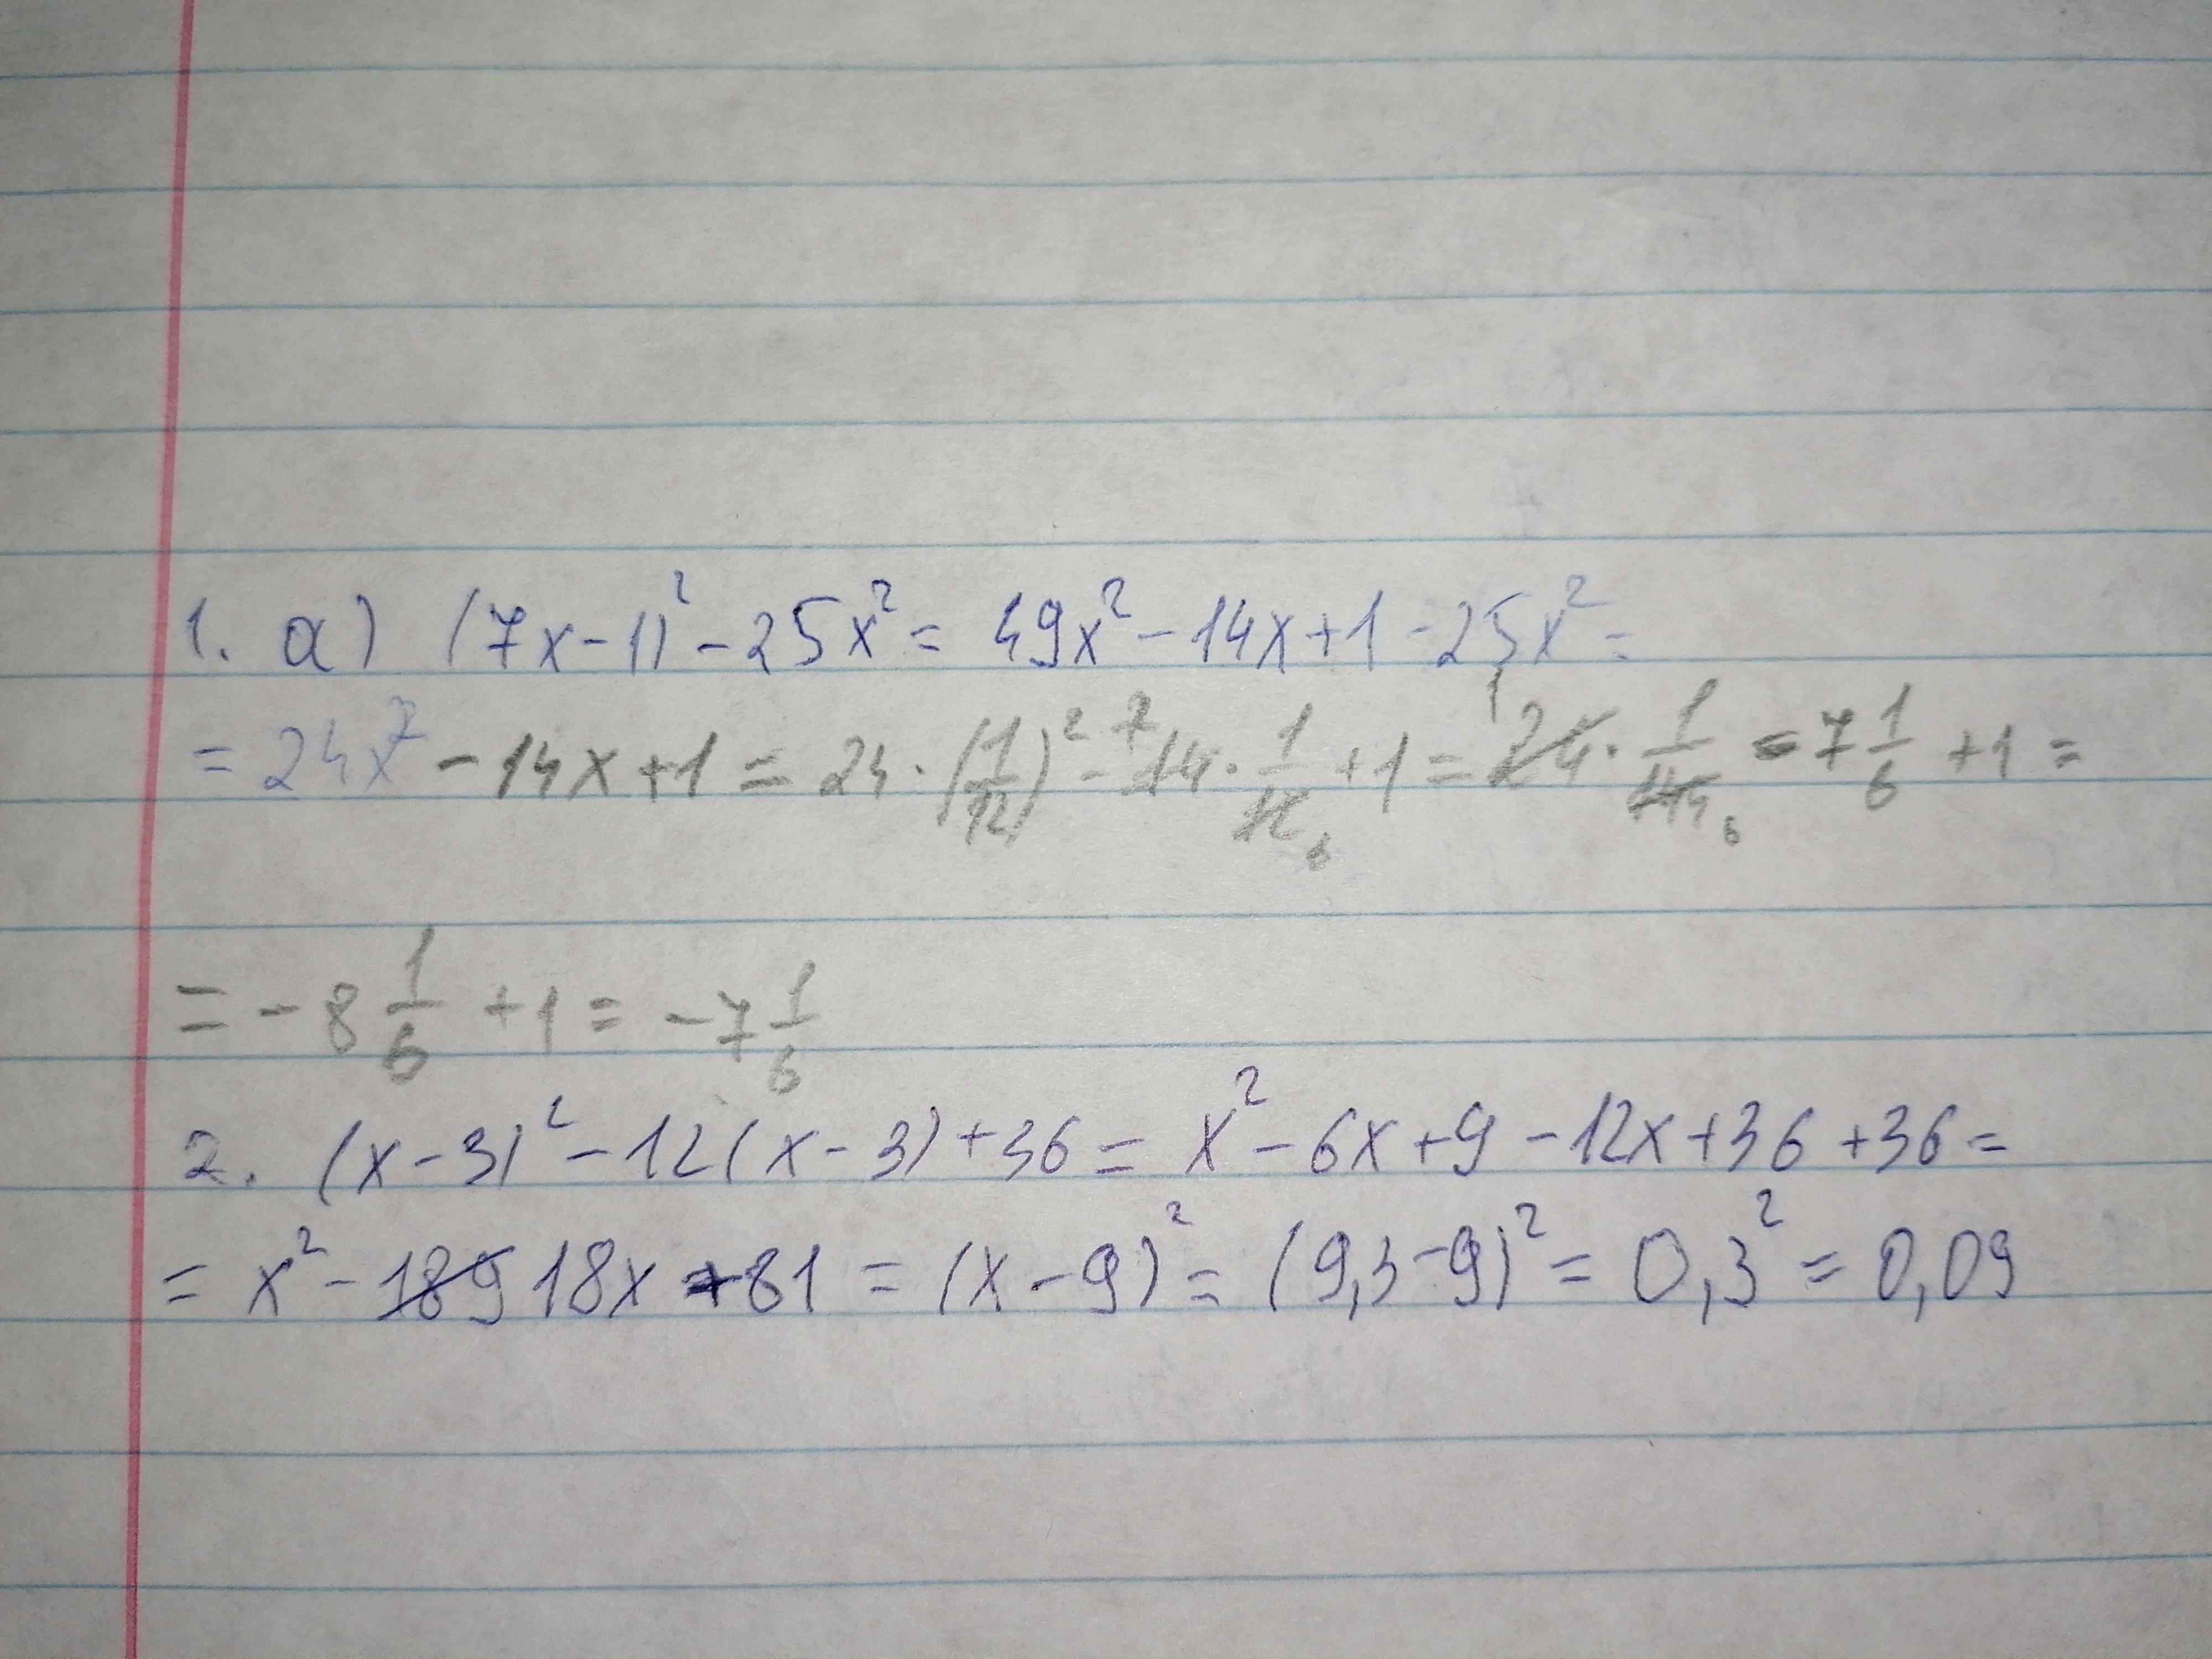 1. а) (7x-1)² - 25x² = 49x² - 14x + 1 - 25x² =
= 24x² - 14x + 1 = 24 · (1/12)² - 14 7 · 1/12 6 + 1 = 24 1 · 1/144 6 - 7 1/6 + 1 =
= - 8 1/6 + 1 = - 7 1/6
2. (x - 3)² - 12(x - 3) + 36 = x² - 6x + 9 - 12x + 36 + 36 =
= x² - 189 18x + 81 = (x - 9)² = (9,3 - 9)² = 0,3² = 0,09